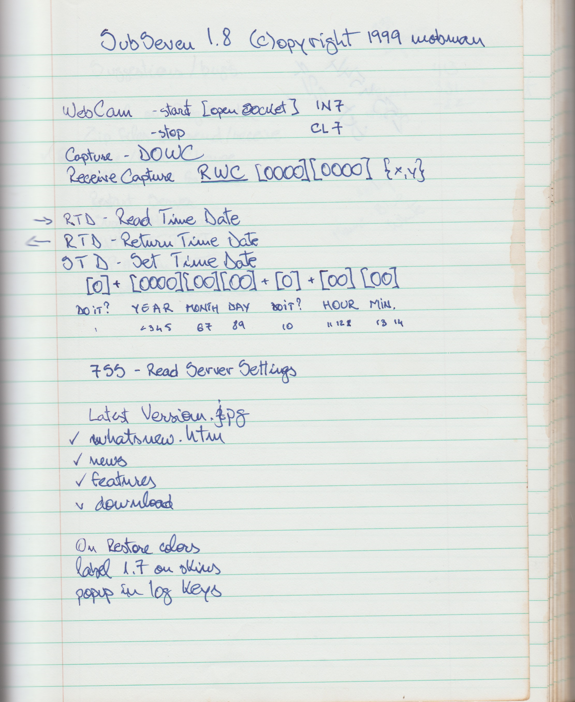 SubSeven 1.8 (c)opyright 1999 mobman
WebCam - start [open socket] IN7
- stop CL7
Capture - DOWC
Receive Capture RWC [0000][0000] {x,y}
→ RTD - Read Time Date
← RTD - Return Time Date
STD - Set Time Date
[0] + [0000][00][00] + [0] + [00] [00]
DO IT? YEAR MONTH DAY DO IT? HOUR MIN.
1 2345 67 89 10 11 12 13 14
7SS - Read Server Settings
Latest Version.jpg
✓ whatsnew.htm
✓ news
✓ features
✓ download
On Restore colors
label 1.7 on skins
popup in log keys